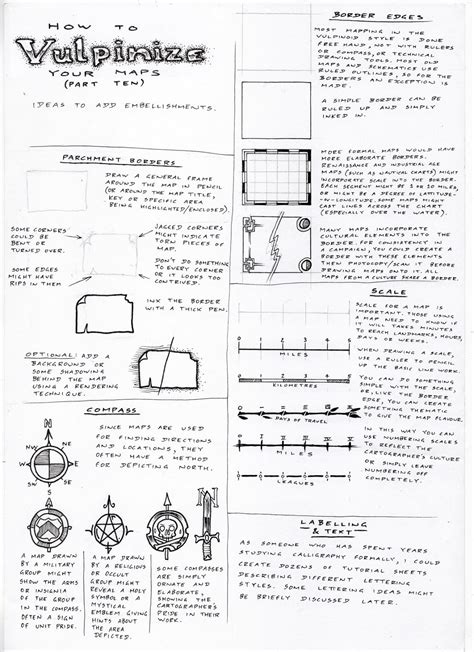 HOW TO
Vulpinize
YOUR MAPS
(PART TEN)
IDEAS TO ADD EMBELLISHMENTS.
PARCHMENT BORDERS
DRAW A GENERAL FRAME
AROUND THE MAP IN PENCIL
(OR AROUND THE MAP TITLE,
KEY OR SPECIFIC AREA
BEING HIGHLIGHTED/ENCLOSED).
SOME CORNERS
COULD BE
BENT OR
TURNED OVER.
JAGGED CORNERS
MIGHT INDICATE
TORN PIECES OF
MAP.
SOME EDGES
MIGHT HAVE
RIPS IN THEM
DON'T DO SOMETHING
TO EVERY CORNER
OR IT LOOKS TOO
CONTRIVED.
INK THE BORDER
WITH A THICK PEN.
OPTIONAL: ADD A
BACKGROUND OR
SOME SHADOWING
BEHIND THE MAP
USING A RENDERING
TECHNIQUE.
COMPASS
SINCE MAPS ARE USED
FOR FINDING DIRECTIONS
AND LOCATIONS, THEY
OFTEN HAVE A METHOD
FOR DEPICTING NORTH.
N
NW
NE
W
E
SW
SE
S
N
A MAP DRAWN
BY A MILITARY
GROUP MIGHT
SHOW THE ARMS
OR INSIGNIA
OF THE GROUP
IN THE COMPASS.
OFTEN A SIGN
OF UNIT PRIDE.
A MAP DRAWN
BY A RELIGIOUS
OR OCCULT
GROUP MIGHT
REVEAL A HOLY
SYMBOL OR A
MYSTICAL
EMBLEM GIVING
HINTS ABOUT
THE AREA
DEPICTED.
SOME COMPASSES
ARE SIMPLY
ORNATE AND
ELABORATE,
SHOWING THE
CARTOGRAPHER'S
PRIDE IN THEIR
WORK.
BORDER EDGES
MOST MAPPING IN THE
VULPINOID STYLE IS DONE
FREE HAND, NOT WITH RULERS
OR COMPASS, OR TECHNICAL
DRAWING TOOLS. MOST OLD
MAPS AND SCHEMATICS USE
RULED OUTLINES, SO FOR THE
BORDERS AN EXCEPTION IS
MADE.
A SIMPLE BORDER CAN BE
RULED UP AND SIMPLY
INKED IN.
MORE FORMAL MAPS WOULD HAVE
MORE ELABORATE BORDERS.
RENAISSANCE AND INDUSTRIAL AGE
MAPS (SUCH AS NAUTICAL CHARTS) MIGHT
INCORPORATE SCALE INTO THE BORDER.
EACH SEGMENT MIGHT BE 5 OR 10 MILES,
OR MIGHT BE A DEGREE OF LATITUDE
-N-LONGITUDE. SOME MAPS MIGHT
CAST LINES ACROSS THE CHART
(ESPECIALLY OVER THE WATER).
MANY MAPS INCORPORATE
CULTURAL ELEMENTS INTO THE
BORDER. FOR CONSISTENCY IN
A CAMPAIGN, YOU COULD CREATE A
BORDER WITH THESE ELEMENTS
THEN PHOTOCOPY/SCAN IT BEFORE
DRAWING MAPS ONTO IT. ALL
MAPS FROM A CULTURE SHARE A BORDER.
SCALE
SCALE FOR A MAP IS
IMPORTANT. THOSE USING
A MAP NEED TO KNOW IF
IT WILL TAKES MINUTES
TO REACH LANDMARKS, HOURS,
DAYS OR WEEKS.
WHEN DRAWING A SCALE,
USE A RULER TO PENCIL
UP THE BASIC LINE WORK.
YOU CAN DO SOMETHING
SIMPLE WITH THE SCALE
OR, LIKE THE BORDER
EDGE, YOU CAN CREATE
SOMETHING THEMATIC
TO GIVE THE MAP
COLOUR.
IN THIS WAY YOU CAN
USE NUMBERING SCALES
TO REFLECT THE
CARTOGRAPHER'S CULTURE
OR SIMPLY LEAVE
NUMBERING OFF
COMPLETELY.
0 1 2 3 4 5
MILES
KILOMETRES
DAYS OF TRAVEL
MILES
LEAGUES
LABELLING
& TEXT
AS SOMEONE WHO HAS SPENT YEARS
STUDYING CALLIGRAPHY FORMALLY, I COULD
CREATE DOZENS OF TUTORIAL SHEETS
DESCRIBING DIFFERENT LETTERING
STYLES. SOME LETTERING IDEAS MIGHT
BE BRIEFLY DISCUSSED LATER.